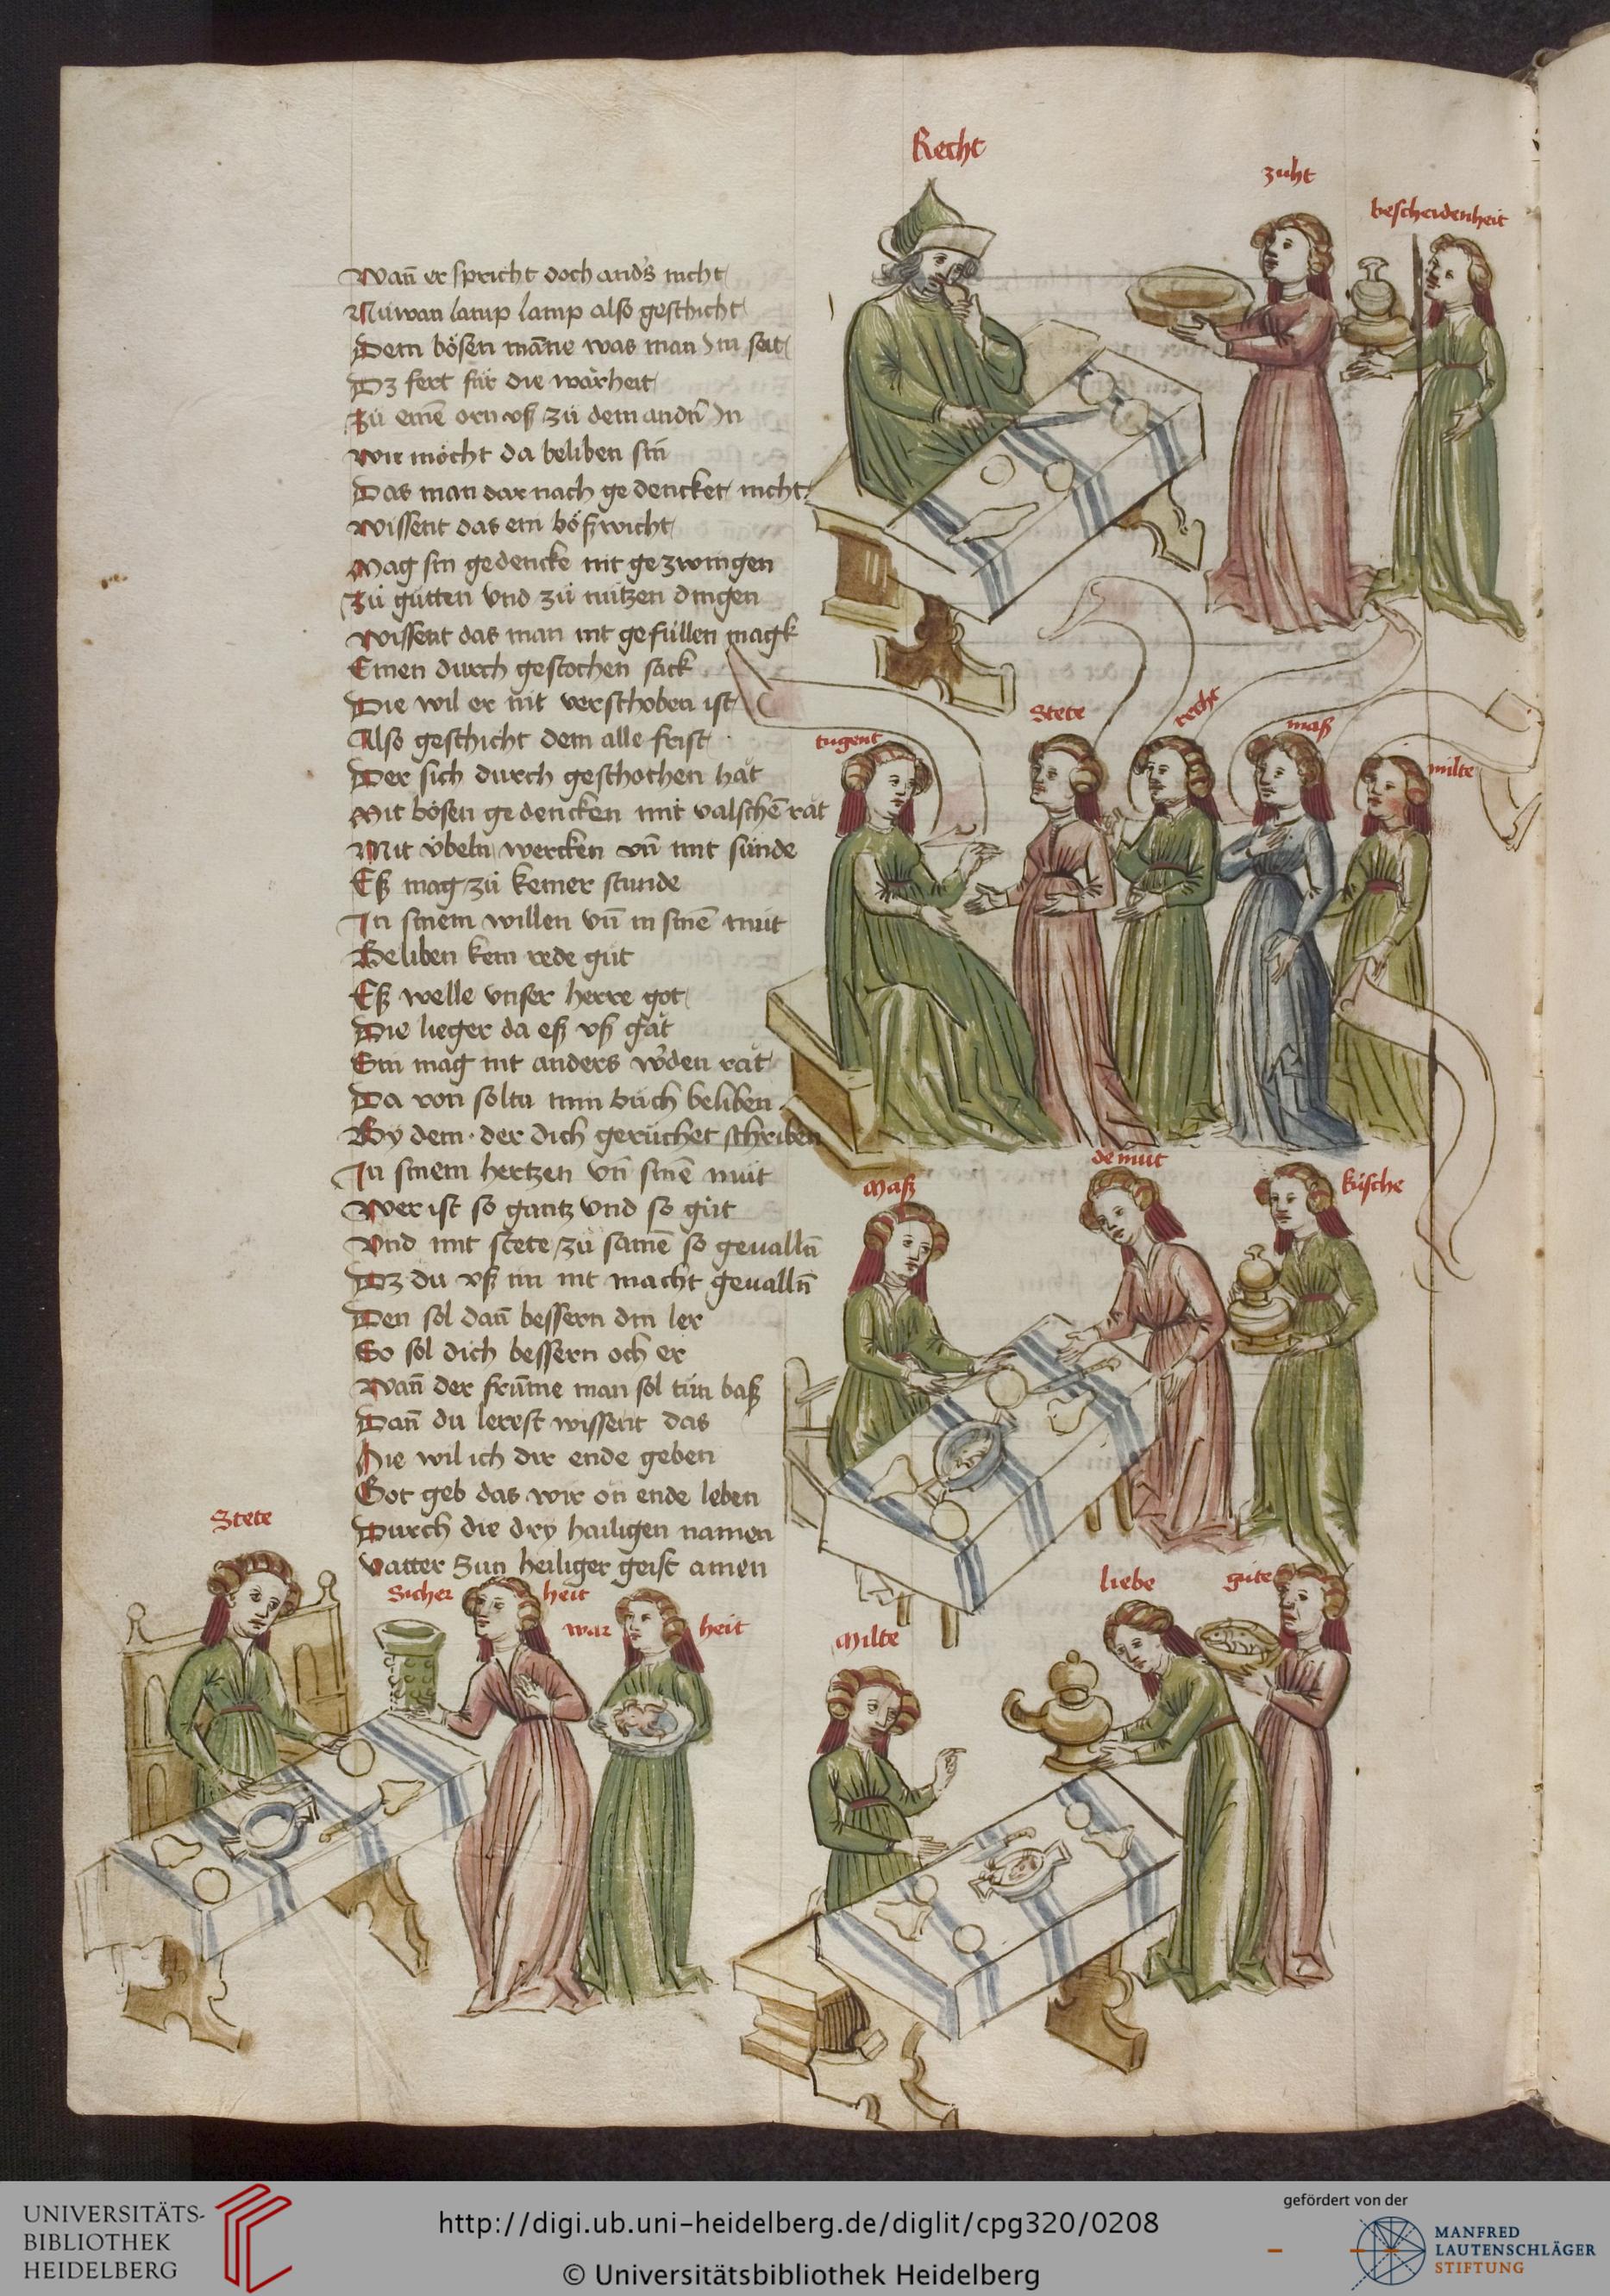 Recht
zuht
bescheidenheit
Wañ er spricht doch and's nicht
Nuwan lamp lamp also geschicht
Dem bösen mañe was man Jm seit
Dz fert für die warheit
Zü einē orn vß zü dem andn̄ Jn
wie möcht da beliben sin
Das man dar nach gedencket nicht
wissent das ein bößwicht
Mag sin gedencke nit gezwingen
Zü gütten vnd zü nützen dingen
wissent das man nit gefüllen magk
Einen durch gestochen sack
Die wil er nit verschoben ist
Also geschicht dem alle frist
Der sich durch geschochen hät
Mit bösen gedencken mit valschē rät
Mit übeln wercken vn̄ mit sünde
Eß mag zü keiner stunde
Jn sinem willen vn̄ in sinē müt
Beliben kein rede güt
Eß welle vnser herre got
Die lieger da eß vß gät
Ein mag nit anders w'den rät
Da von soltu min büch beliben
By dem der dich gerüchet schriben
Jn sinem hertzen vn̄ sinē müt
Wer ist so gantz vnd so güt
Vnd mit stete zü samē so geualln̄
Dz du vß im nit macht geualln̄
Den sol dan̄ bessern din ler
So sol dich bessern och er
Wan̄ der frum̄e man sol tün baß
Dan̄ du lerest wissent das
Hie wil ich dir ende geben
Got geb das wir ön ende leben
Durch die dry hailigen namen
Vatter Sun heiliger geist amen
tugent
Stete
recht
maß
milte
Maß
demut
küsche
Stete
Sicher heit
war heit
Milte
liebe
güte
UNIVERSITÄTS-
BIBLIOTHEK
HEIDELBERG
http://digi.ub.uni-heidelberg.de/diglit/cpg320/0208
© Universitätsbibliothek Heidelberg
gefördert von der
MANFRED
LAUTENSCHLÄGER
STIFTUNG